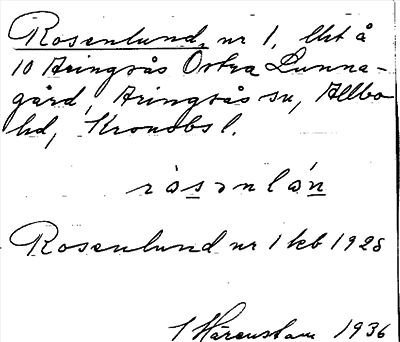 Rosenlund, nr 1, lht å
10 Aringsås Östra Lunna-
gård, Aringsås sn, Allbo
hd, Kronobs l.
rosənlán
Rosenlund nr 1 kb 1928
Härenstam 1936